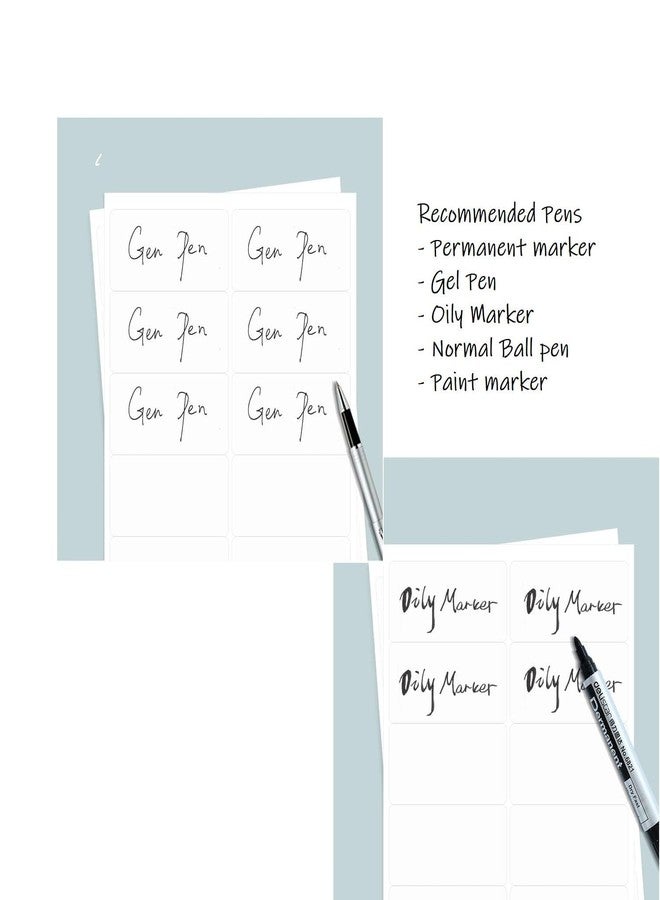 Gen Pen Gen Pen
Gen Pen Gen Pen
Gen Pen Gen Pen
Recommended Pens
- Permanent marker
- Gel Pen
- Oily Marker
- Normal Ball pen
- Paint marker
Oily Marker Oily Marker
Oily Marker Oily Marker
Permanent
Dry Fast